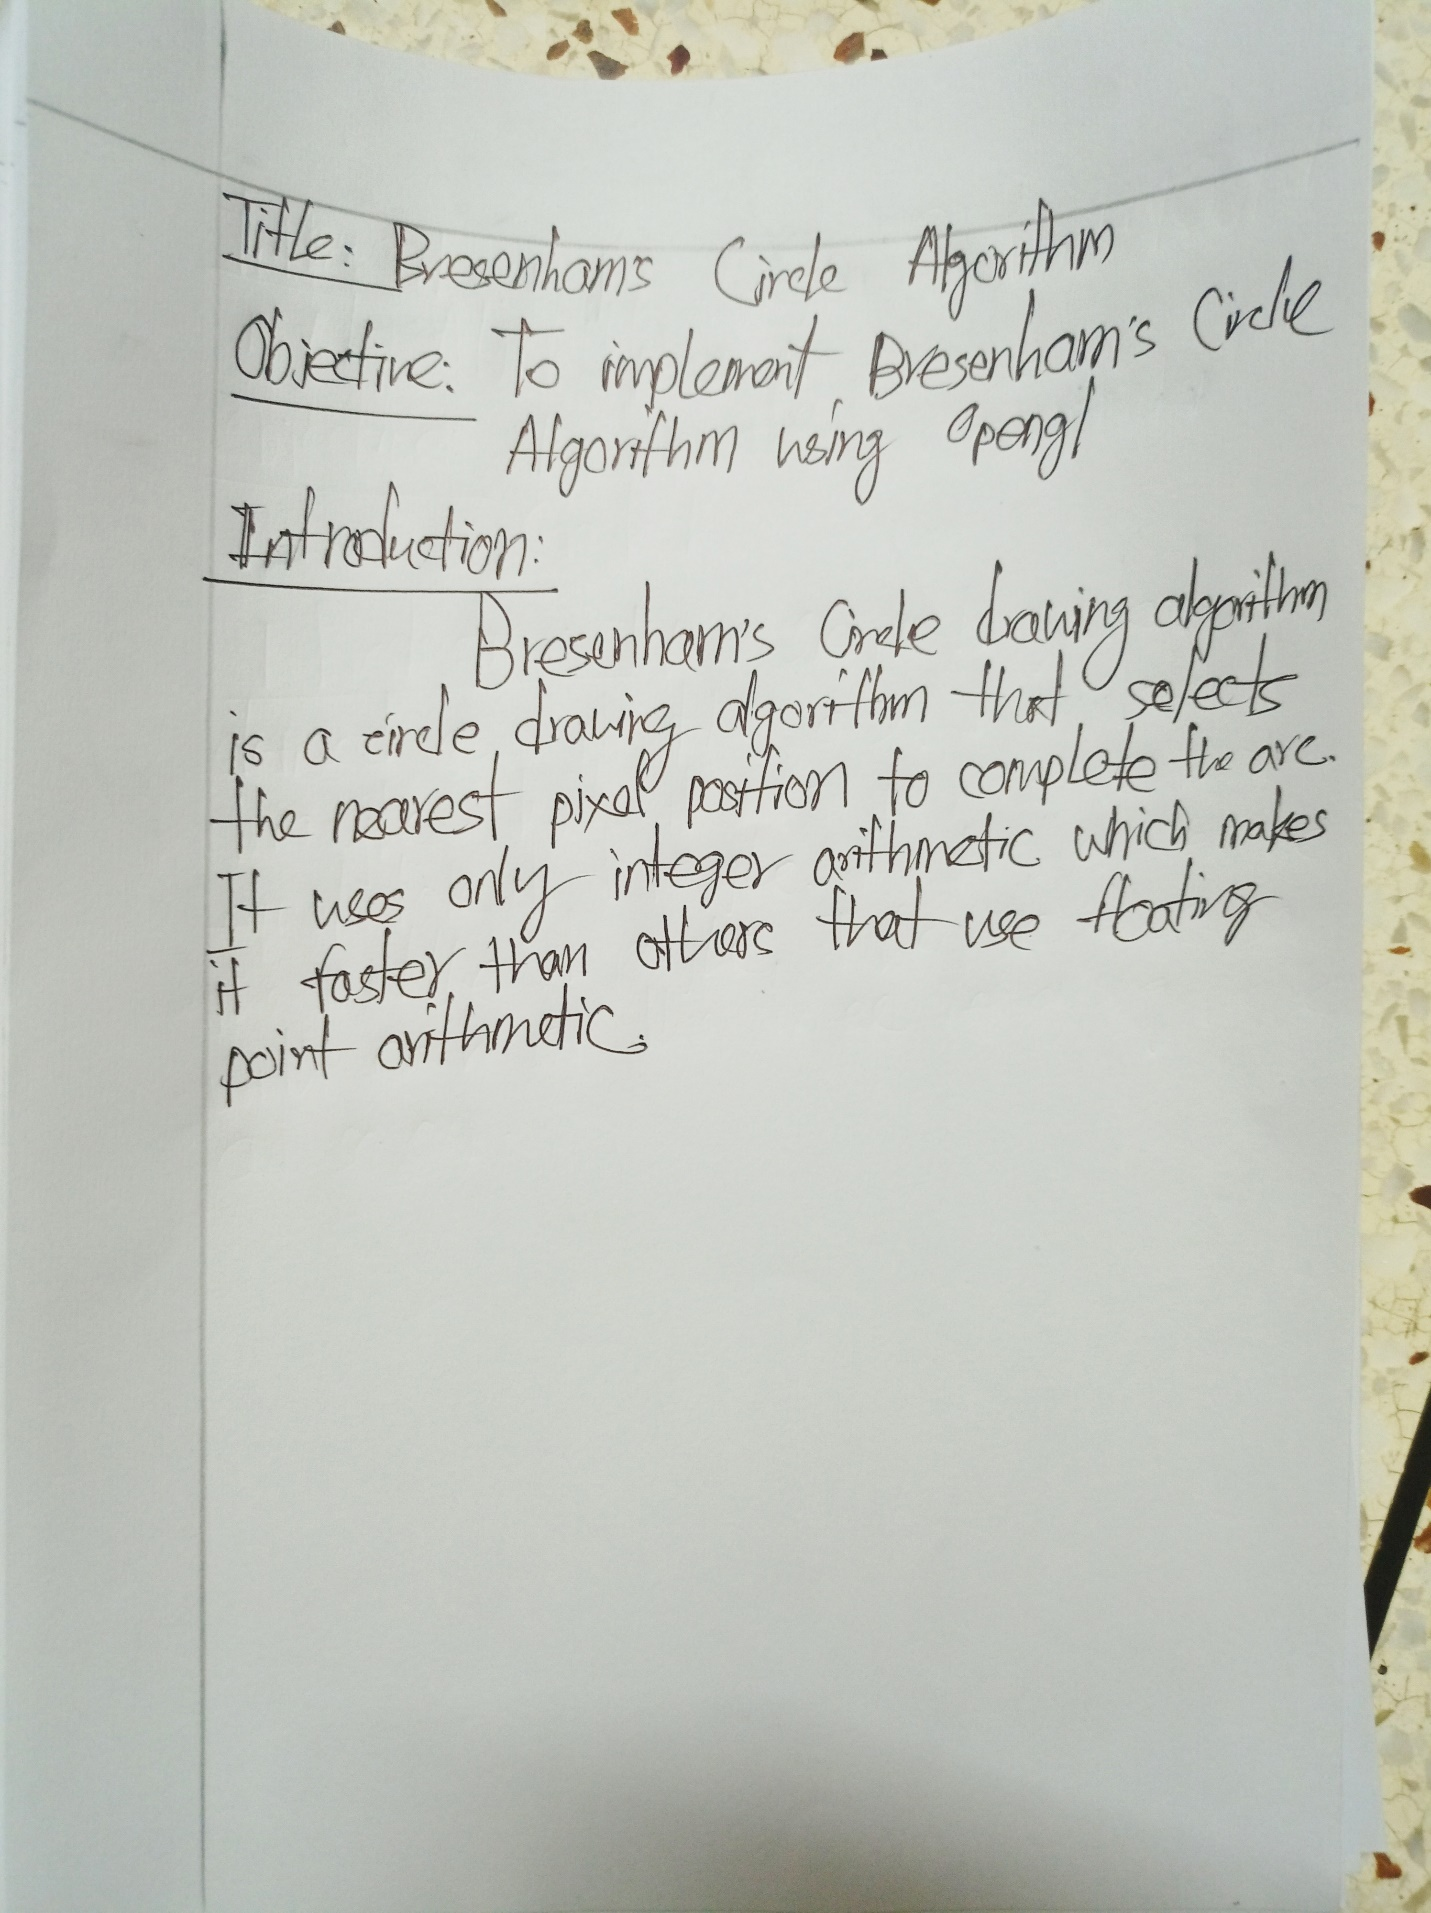 Title: Bresenham's Circle Algorithm
Objective: To implement Bresenham's Circle
Algorithm using Opengl
Introduction:
Bresenham's Circle drawing algorithm
is a circle drawing algorithm that selects
the nearest pixel position to complete the arc.
It uses only integer arithmetic which makes
it faster than others that use floating
point arithmetic.